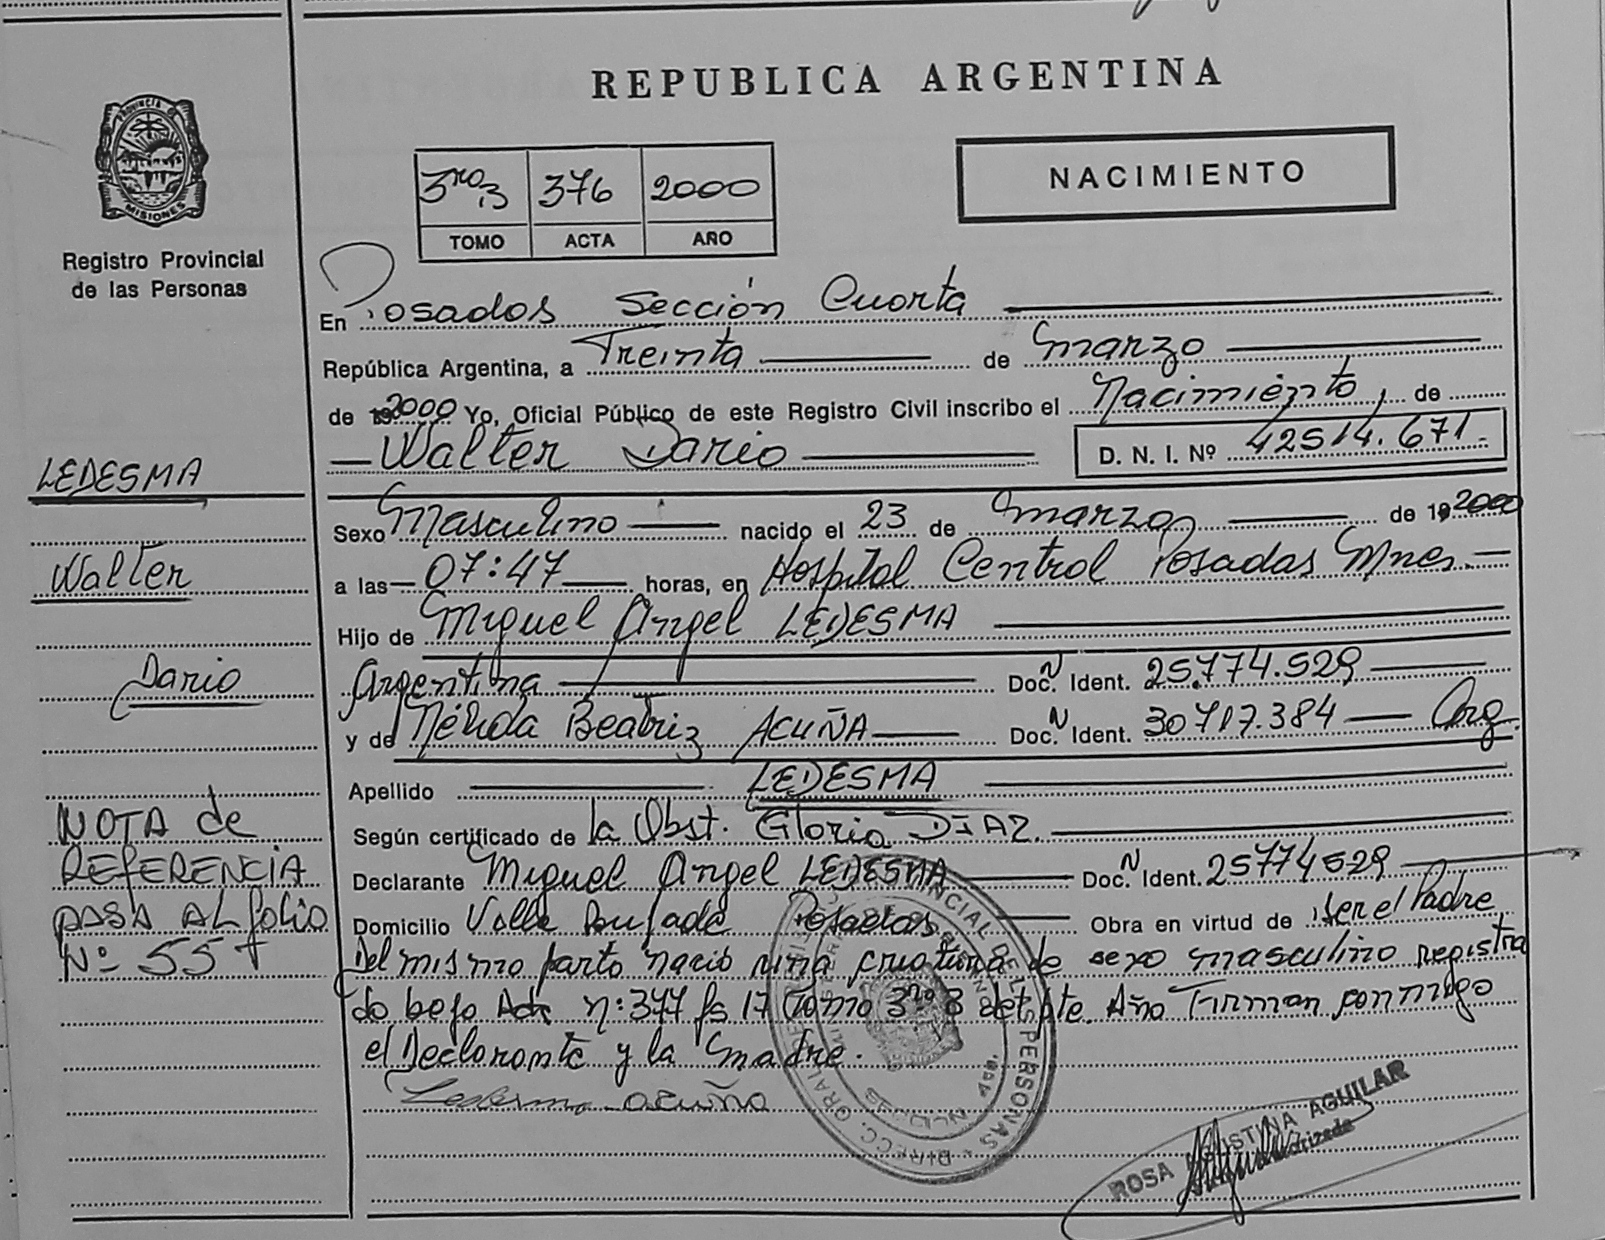 REPUBLICA ARGENTINA
PROVINCIA DE
MISIONES
Registro Provincial
de las Personas
3ro 3 376 2000
TOMO ACTA AÑO
NACIMIENTO
En Posadas Sección Cuarta
República Argentina, a Treinta de Marzo
de 2000 Yo, Oficial Público de este Registro Civil inscribo el Nacimiento, de
Walter Dario D. N. I. Nº 42514.671
Sexo Masculino nacido el 23 de Marzo de 19 2000
a las 07:47 horas, en Hospital Central Posadas Mnes.
Hijo de Miguel Angel LEDESMA
Argentina Doc. N Ident. 25.774.529
y de Nélida Beatriz ACUÑA Doc. N Ident. 30717.384 Arg.
Apellido LEDESMA
Según certificado de la Obst. Gloria DIAZ
Declarante Miguel Angel LEDESMA Doc. N Ident. 25774529
Domicilio Posadas Obra en virtud de ser el Padre
Del mismo parto nació criatura de sexo masculino registra
do bajo Acta n: 377 fs 17 Tomo 3ro 3 del pte. Año Firman conmigo
el Declarante y la Madre.
Ledesma acuña
LEDESMA
Walter
Dario
NOTA de
REFERENCIA
PASA AL folio
Nº 55
DIRECC. GRAL. PROVINCIAL DE LAS PERSONAS
ROSA CRISTINA AGUILAR
Autorizada